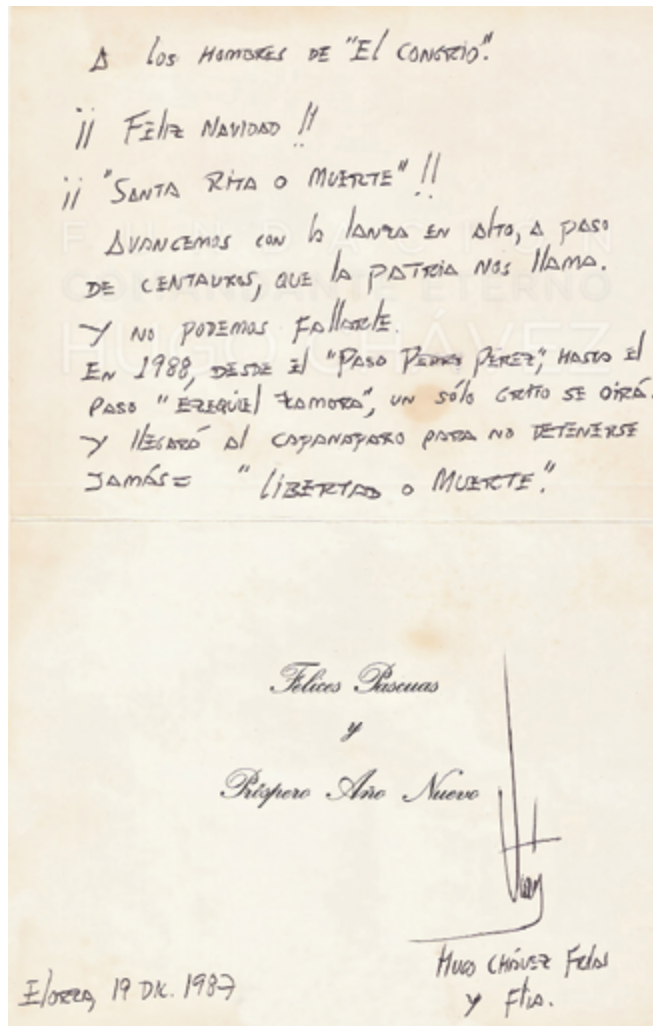 A los HOMBRES DE "El CONGRIO".
¡¡ FELIZ NAVIDAD !!
¡¡ "SANTA RITA O MUERTE" !!
AVANCEMOS CON la lANZA EN AlTO, A PASO
DE CENTAUROS, QUE la PATRIA NOS llAMA.
Y NO PODEMOS FAllARlE.
EN 1988, DESDE El "PASO PEDRO PÉREZ", HASTA El
PASO "EZEQUIEl ZAMORA", UN SÓlO GRITO SE OIRÁ.
Y llEGARÁ Al CAPANAPARO PARA NO DETENERSE
JAMÁS= "lIBERTAD O MUERTE".
FUNDACIÓN
COMANDANTE ETERNO
HUGO CHÁVEZ
Felices Pascuas
y
Próspero Año Nuevo
HUGO CHÁVEZ FRÍAS
Y Flia.
Elorza, 19 DIC. 1987